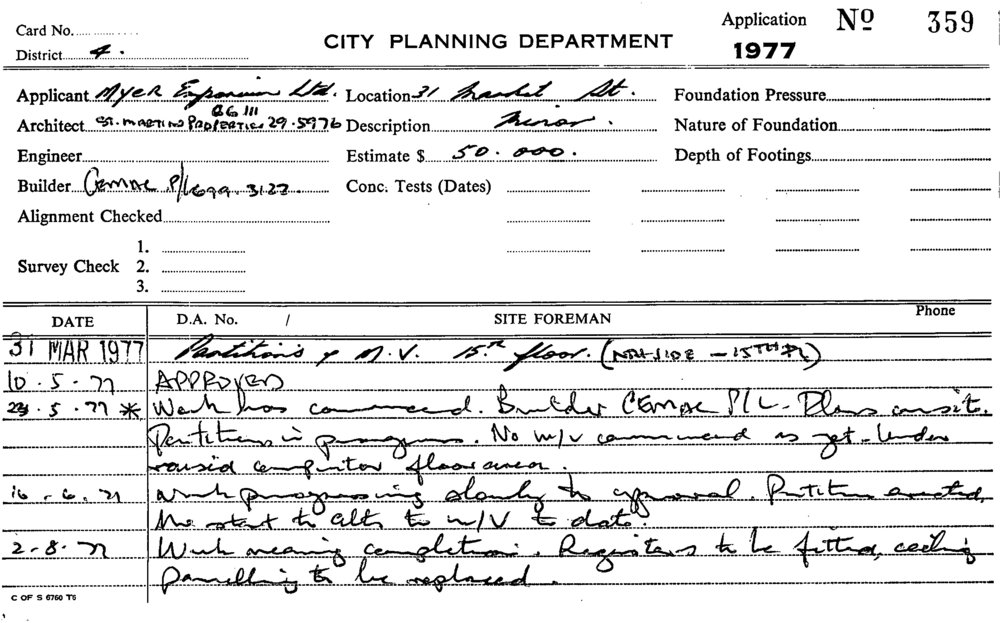 Card No.
District 4.
CITY PLANNING DEPARTMENT
Application No 359
1977
Applicant Myer Emporium Ltd. Location 31 Market St. Foundation Pressure
Architect St. Martins Properties 29.5976 Description Minor. Nature of Foundation
Engineer Estimate $ 50.000. Depth of Footings
Builder Cemac P/L 699.3122. Conc. Tests (Dates)
Alignment Checked
1.
Survey Check 2.
3.
DATE D.A. No. / SITE FOREMAN Phone
31 MAR 1977 Partitions & M.V. 15th floor. (NTH SIDE - 15TH FL)
10.5.77 APPROVED
23.5.77 * Work has commenced. Builder CEMAC P/L. Plans on site.
Partitions in progress. No m/v commenced as yet. Under
raised computor floor area.
16.6.77 Work progressing slowly to approval. Partitions erected,
No start to alts to m/V to date.
2-8-77 Work nearing completion. Registers to be fitted, ceiling
panelling to be replaced.
C OF S 6760 T5